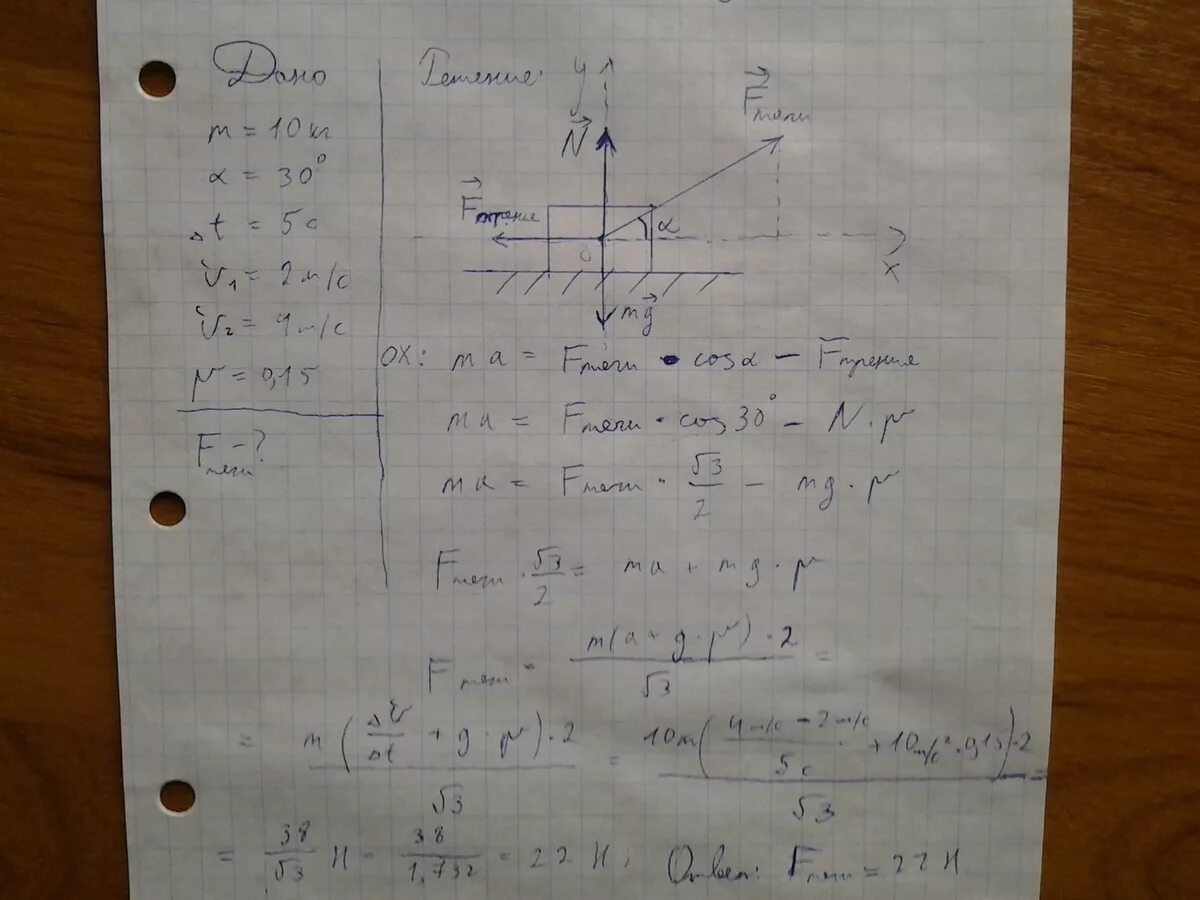 Дано
m = 10 кг
α = 30°
Δt = 5 с
v₁ = 2 м/с
v₂ = 4 м/с
μ = 0,15
Fтяги - ?
Решение:
y
N
Fтяги
Fтрение
α
O
x
mg
OX: ma = Fтяги · cosα − Fтрения
ma = Fтяги · cos30° − N · μ
ma = Fтяги · √3/2 − mg · μ
Fтяги · √3/2 = ma + mg · μ
Fтяги = m(a + g · μ) · 2 / √3 =
= m(Δv/Δt + g · μ) · 2 / √3 = 10кг(4 м/с − 2 м/с / 5 с + 10 м/с² · 0,15) · 2 / √3 =
= 38/√3 Н = 38/1,732 = 22 Н; Ответ: Fтяги = 22 Н